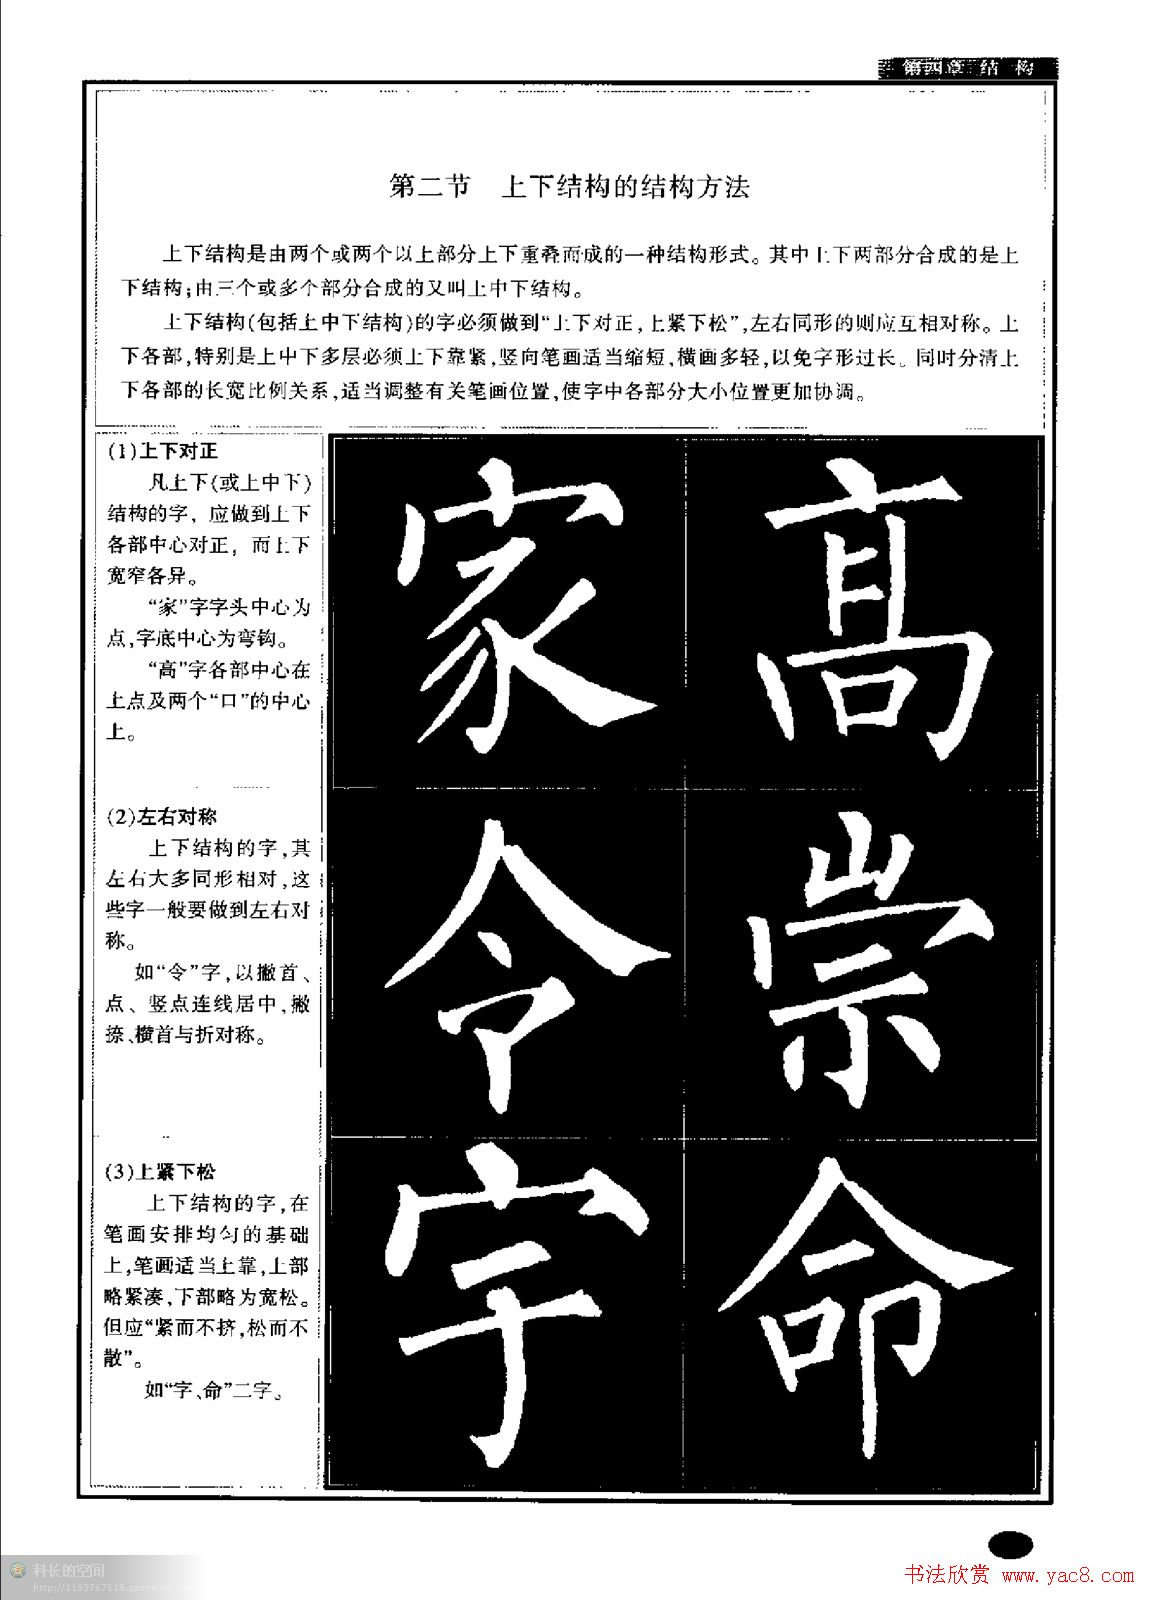 第四章 结 构
第二节 上下结构的结构方法
上下结构是由两个或两个以上部分上下重叠而成的一种结构形式。其中上下两部分合成的是上
下结构;由三个或多个部分合成的又叫上中下结构。
上下结构(包括上中下结构)的字必须做到“上下对正,上紧下松”,左右同形的则应互相对称。上
下各部,特别是上中下多层必须上下靠紧,竖向笔画适当缩短,横画多轻,以免字形过长。同时分清上
下各部的长宽比例关系,适当调整有关笔画位置,使字中各部分大小位置更加协调。
(1)上下对正
凡上下(或上中下)
结构的字, 应做到上下
各部中心对正, 而上下
宽窄各异。
“家”字字头中心为
点,字底中心为弯钩。
“高”字各部中心在
上点及两个“口”的中心
上。
家 高
(2)左右对称
上下结构的字,其
左右大多同形相对,这
些字一般要做到左右对
称。
如“令”字,以撇首、
点、竖点连线居中,撇
捺、横首与折对称。
令 崇
(3)上紧下松
上下结构的字,在
笔画安排均匀的基础
上,笔画适当上靠,上部
略紧凑,下部略为宽松。
但应“紧而不挤,松而不
散”。
如“字、命”二字。
字 命
科长的空间
http://1193767618.qzone.qq.com
书法欣赏 www.yac8.com